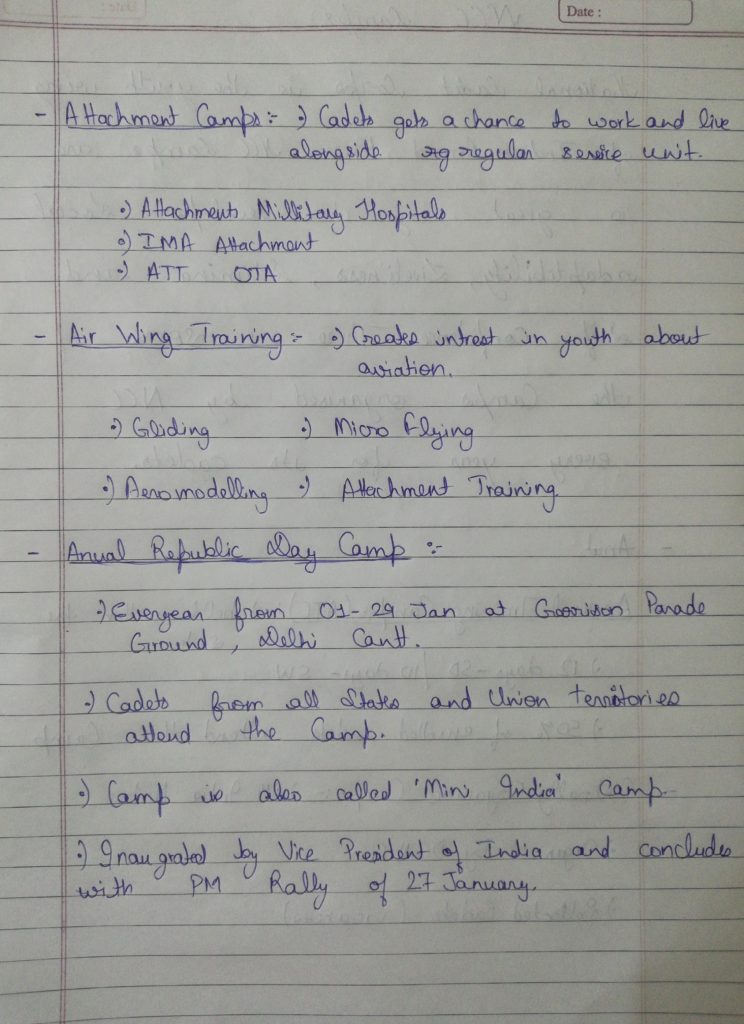 Date :
- Attachment Camps :- •) Cadets gets a chance to work and live
alongside rg regular service unit.
•) Attachments Millitary Hospitals
•) IMA Attachment
•) ATT OTA
- Air Wing Training :- •) Creates intrest in youth about
aviation.
•) Gliding •) Micro flying
•) Aeromodelling •) Attachment Training.
- Anual Republic Day Camp :-
•) Everyear from 01-29 Jan at Garrison Parade
Ground, Delhi Cantt.
•) Cadets from all States and Union territories
attend the Camp.
•) Camp is also called 'Mini India' Camp.
•) Inaugrated by Vice President of India and concludes
with PM Rally of 27 January.